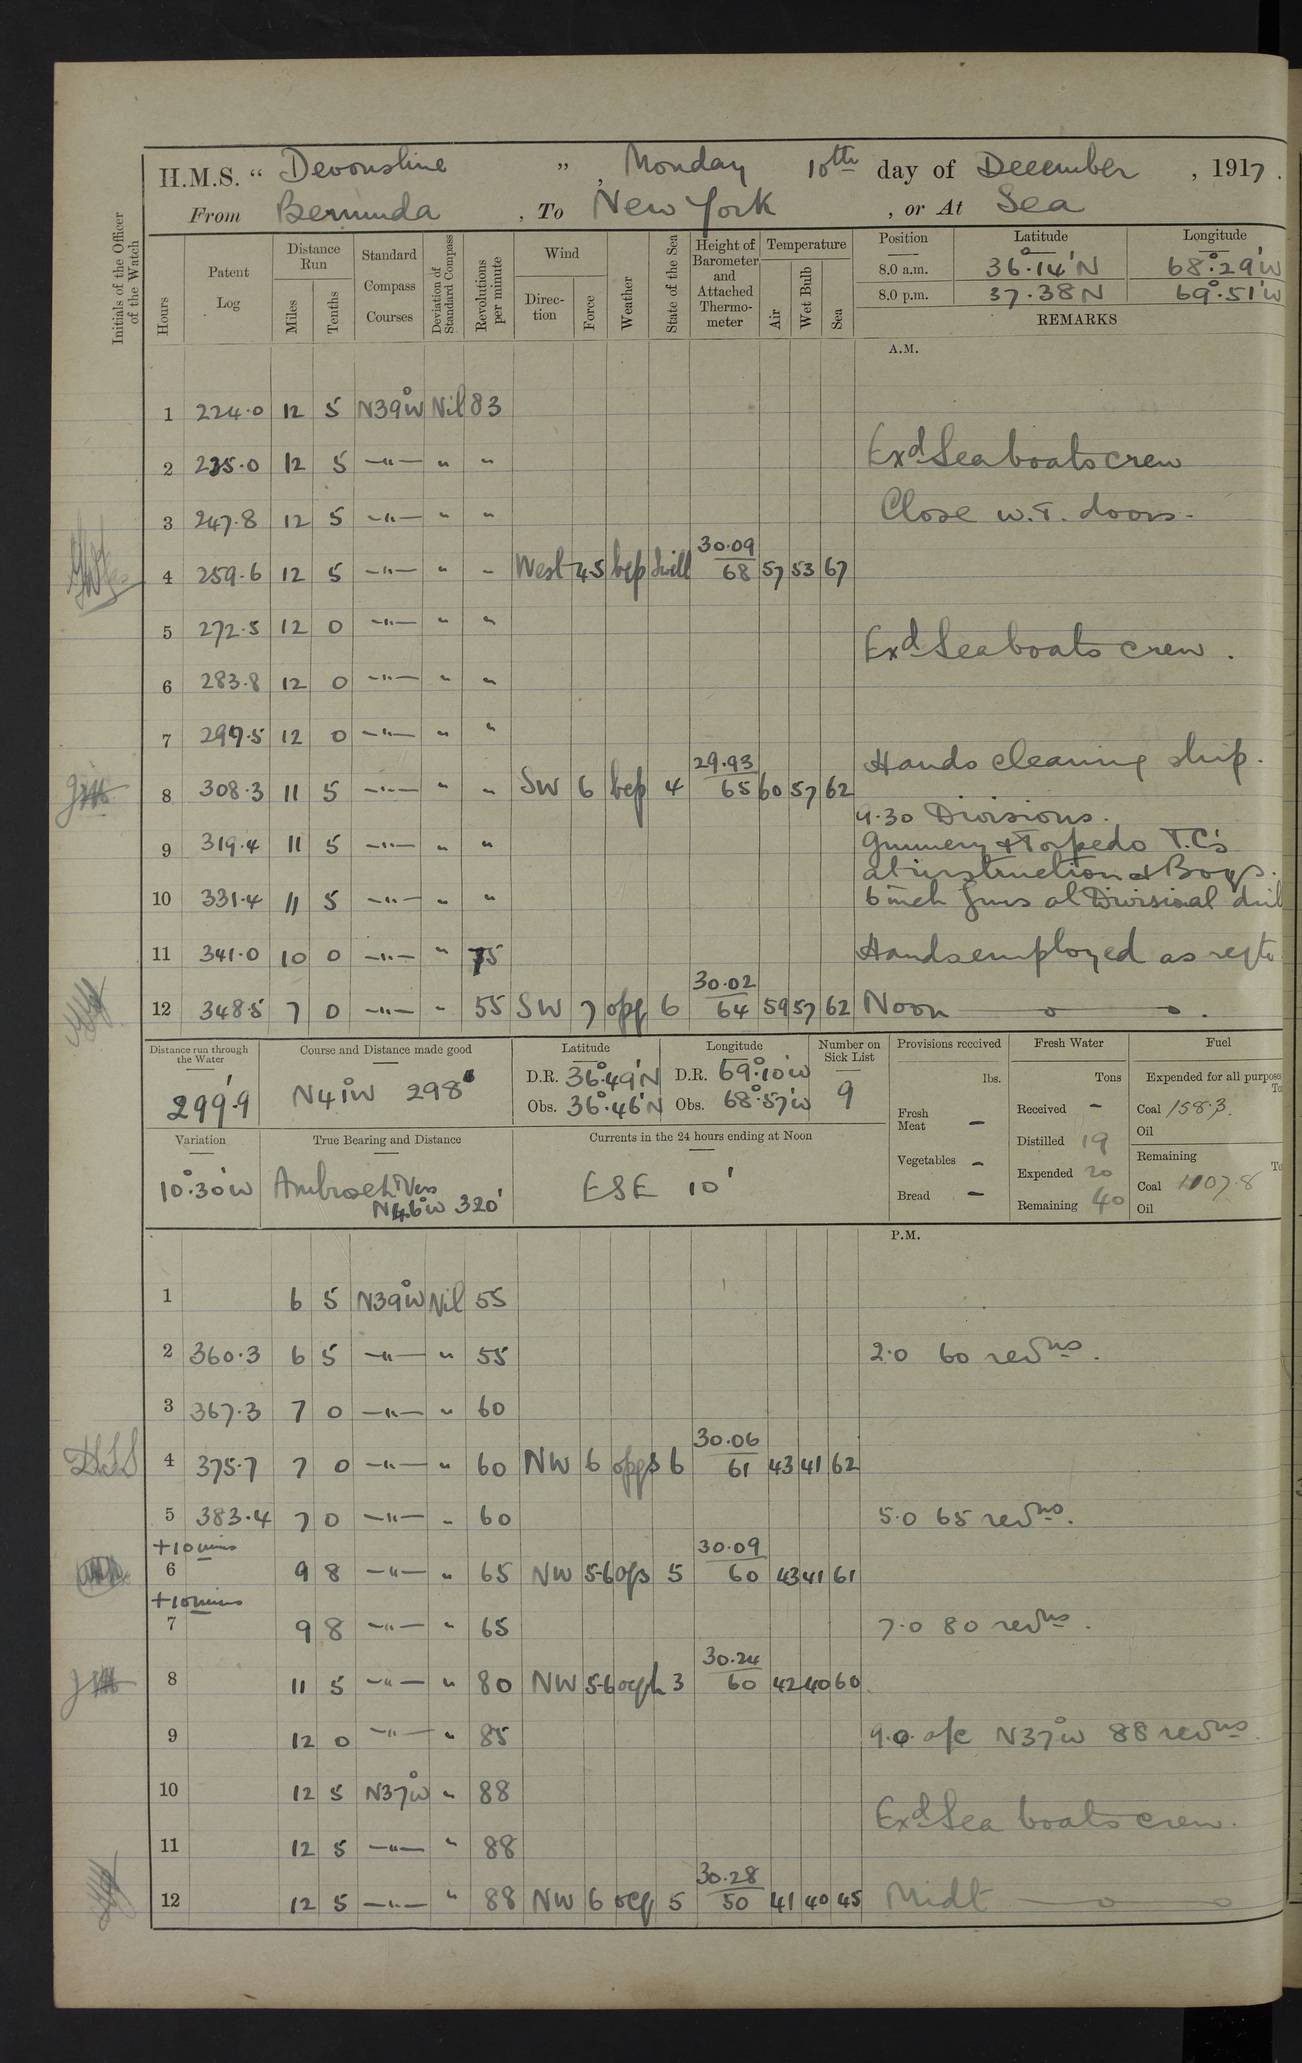 H.M.S. “ Devonshire ” , Monday 10th day of December , 1917 .
From Bermuda , To New York , or At Sea
Initials of the Officer of the Watch
Hours
Patent Log
Distance Run
Miles
Tenths
Standard Compass Courses
Deviation of Standard Compass
Revolutions per minute
Wind
Direc-tion
Force
Weather
State of the Sea
Height of Barometer and Attached Thermo-meter
Temperature
Air
Wet Bulb
Sea
Position Latitude Longitude
8.0 a.m. 36°.14'N 68°.29'W
8.0 p.m. 37.38N 69°.51'W
REMARKS
A.M.
1 224.0 12 5 N39°W Nil 83
2 235.0 12 5 —"— " " Exd Sea boats crew
3 247.8 12 5 —"— " " Close W.T. doors.
4 259.6 12 5 —"— " " West 4.5 bcp Swell 30.09 68 57 53 67
5 272.5 12 0 —"— " " Exd Sea boats crew.
6 283.8 12 0 —"— " "
7 297.5 12 0 —"— " " Hands cleaning ship.
8 308.3 11 5 —"— " " SW 6 bcp 4 29.93 65 60 57 62
9.30 Divisions.
9 319.4 11 5 —"— " " Gunnery & Torpedo T.C's
at instruction & Boys.
10 331.4 11 5 —"— " " 6 inch Guns at Divisional drill
11 341.0 10 0 —"— " 75 Hands employed as reqte
12 348.5 7 0 —"— " 55 SW 7 opq 6 30.02 64 59 57 62 Noon
Distance run through the Water 299'.9
Course and Distance made good N41°W 298'
Latitude D.R. 36°.49'N Obs. 36°.46'N
Longitude D.R. 69°.10'W Obs. 68°.57'W
Number on Sick List 9
Provisions received lbs.
Fresh Meat —
Vegetables —
Bread —
Fresh Water Tons
Received -
Distilled 19
Expended 20
Remaining 40
Fuel
Expended for all purpose
Coal 158.3.
Oil
Remaining
Coal 1107.8
Oil
Variation 10°.30'W
True Bearing and Distance Ambrose Lt Vess
N46°W 320'
Currents in the 24 hours ending at Noon ESE 10'
P.M.
1 6 5 N39°W Nil 55
2 360.3 6 5 —"— " 55 2.0 60 revns.
3 367.3 7 0 —"— " 60
4 375.7 7 0 —"— " 60 NW 6 opqs 6 30.06 61 43 41 62
5 383.4 7 0 —"— " 60 5.0 65 revns.
+10 mins
6 9 8 —"— " 65 NW 5-6 ops 5 30.09 60 43 41 61
+10 mins
7 9 8 —"— " 65 7.0 80 revns.
8 11 5 —"— " 80 NW 5-6 3 30.24 60 42 40 60
9 12 0 —"— " 85 9.0 a/c N37°W 88 revns.
10 12 5 N37°W " 88
Exd Sea boats crew.
11 12 5 —"— " 88
12 12 5 —"— " 88 NW 6 ocq 5 30.28 50 41 40 45 Midt